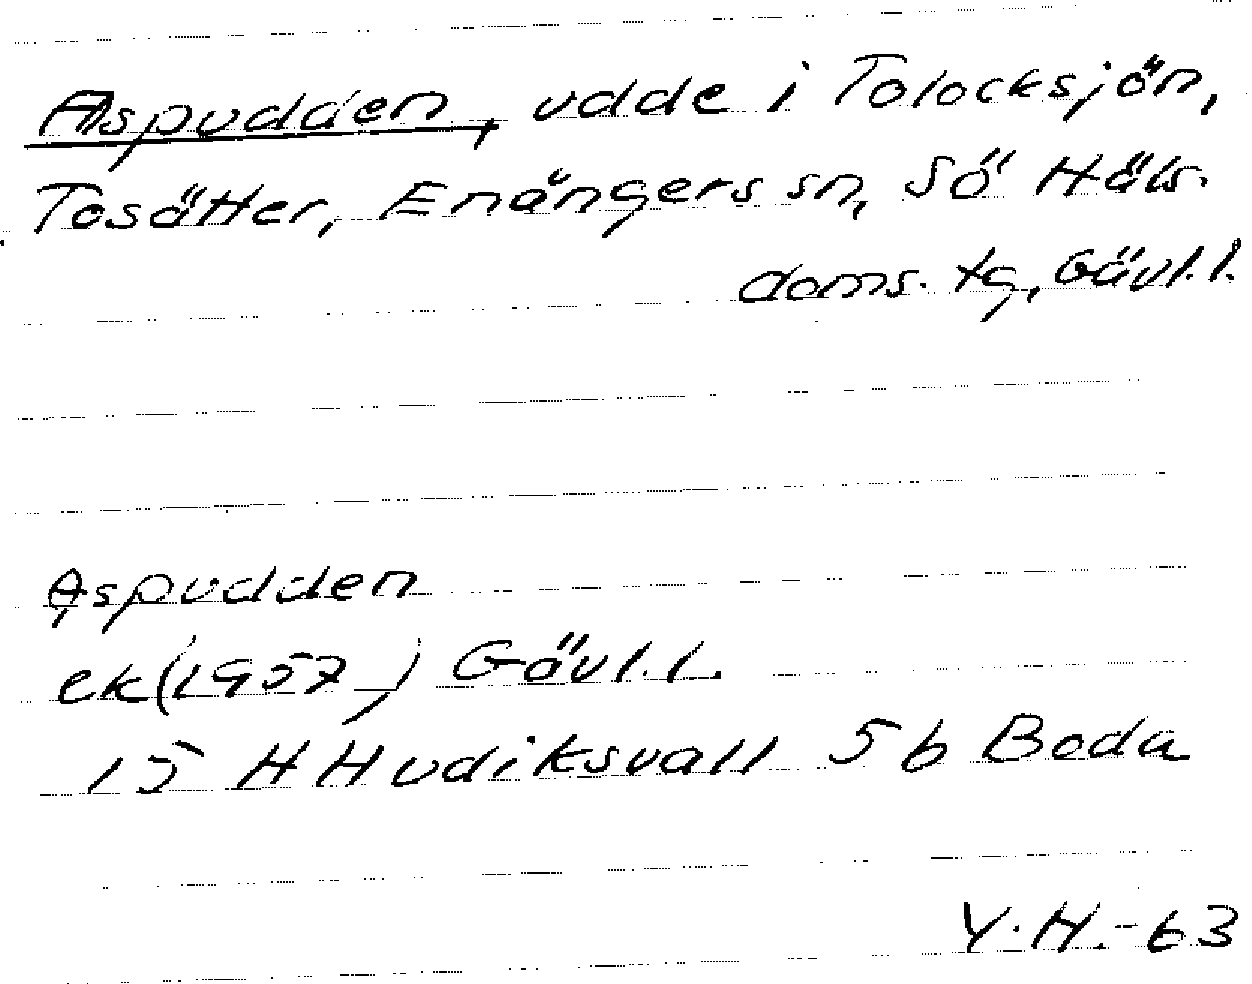 Aspudden, udde i Tolocksjön,
Tosätter, Enångers sn, Sö Häls.
doms. tg, Gävl.l.
Aspudden
ek(1957) Gävl.l.
15 H Hudiksvall 5 b Boda
Y.H.-63